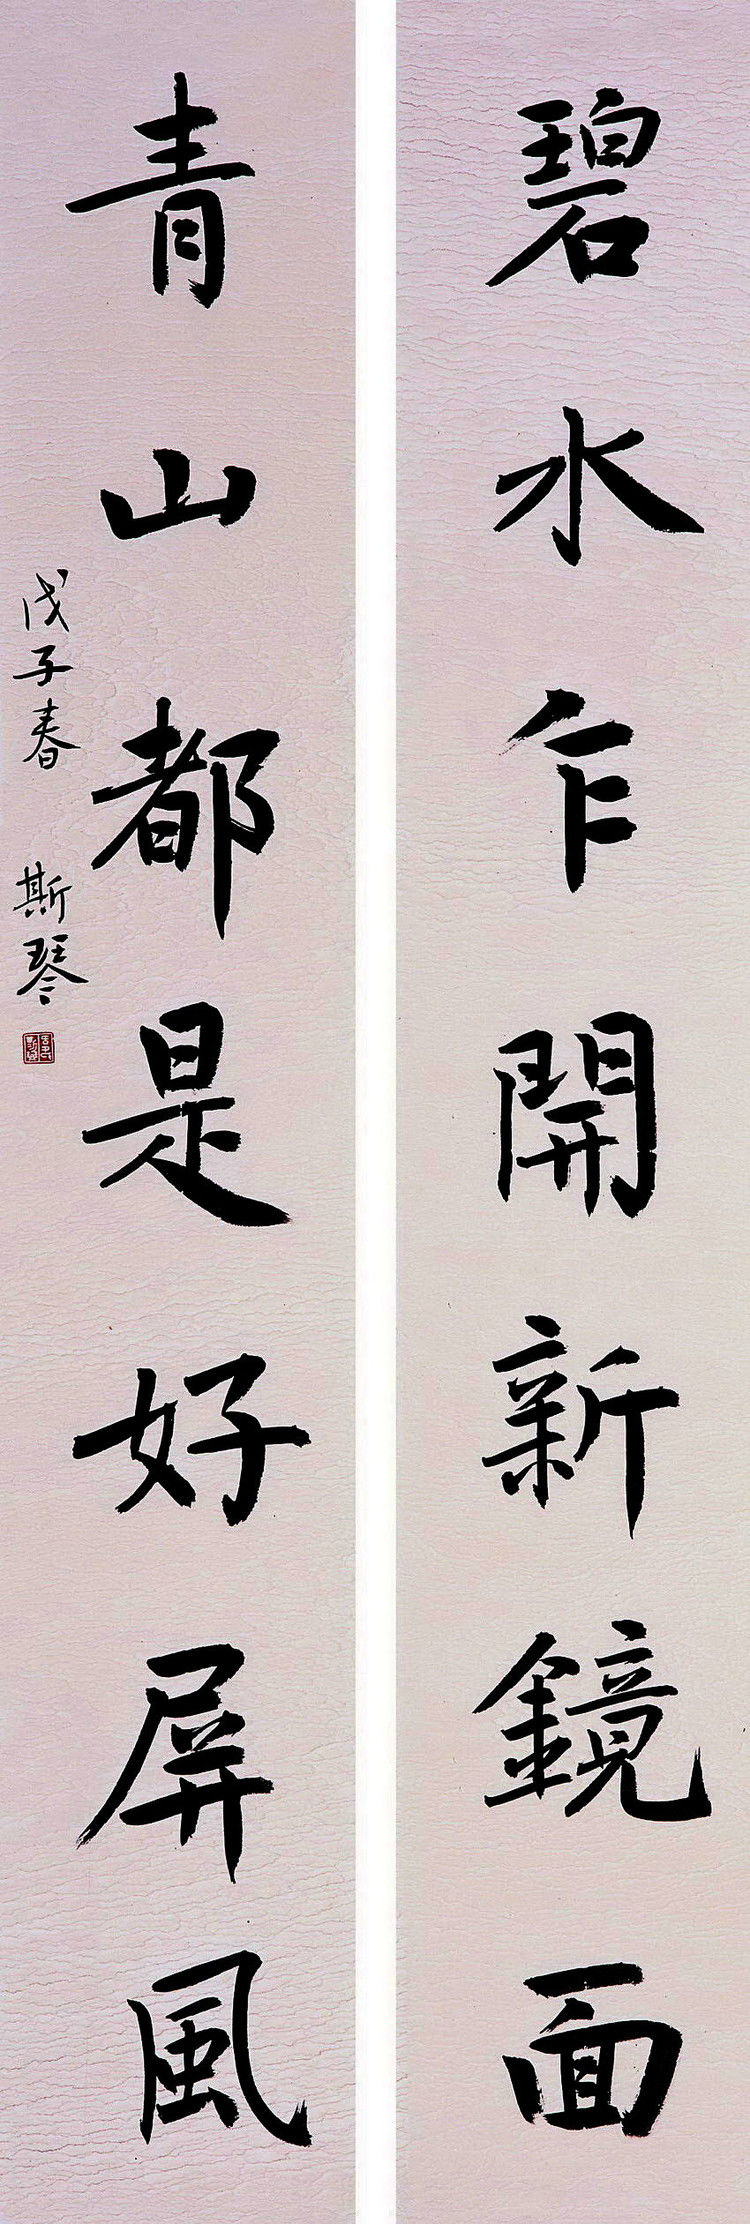 碧水乍開新鏡面
青山都是好屏風
戊子春 斯琴